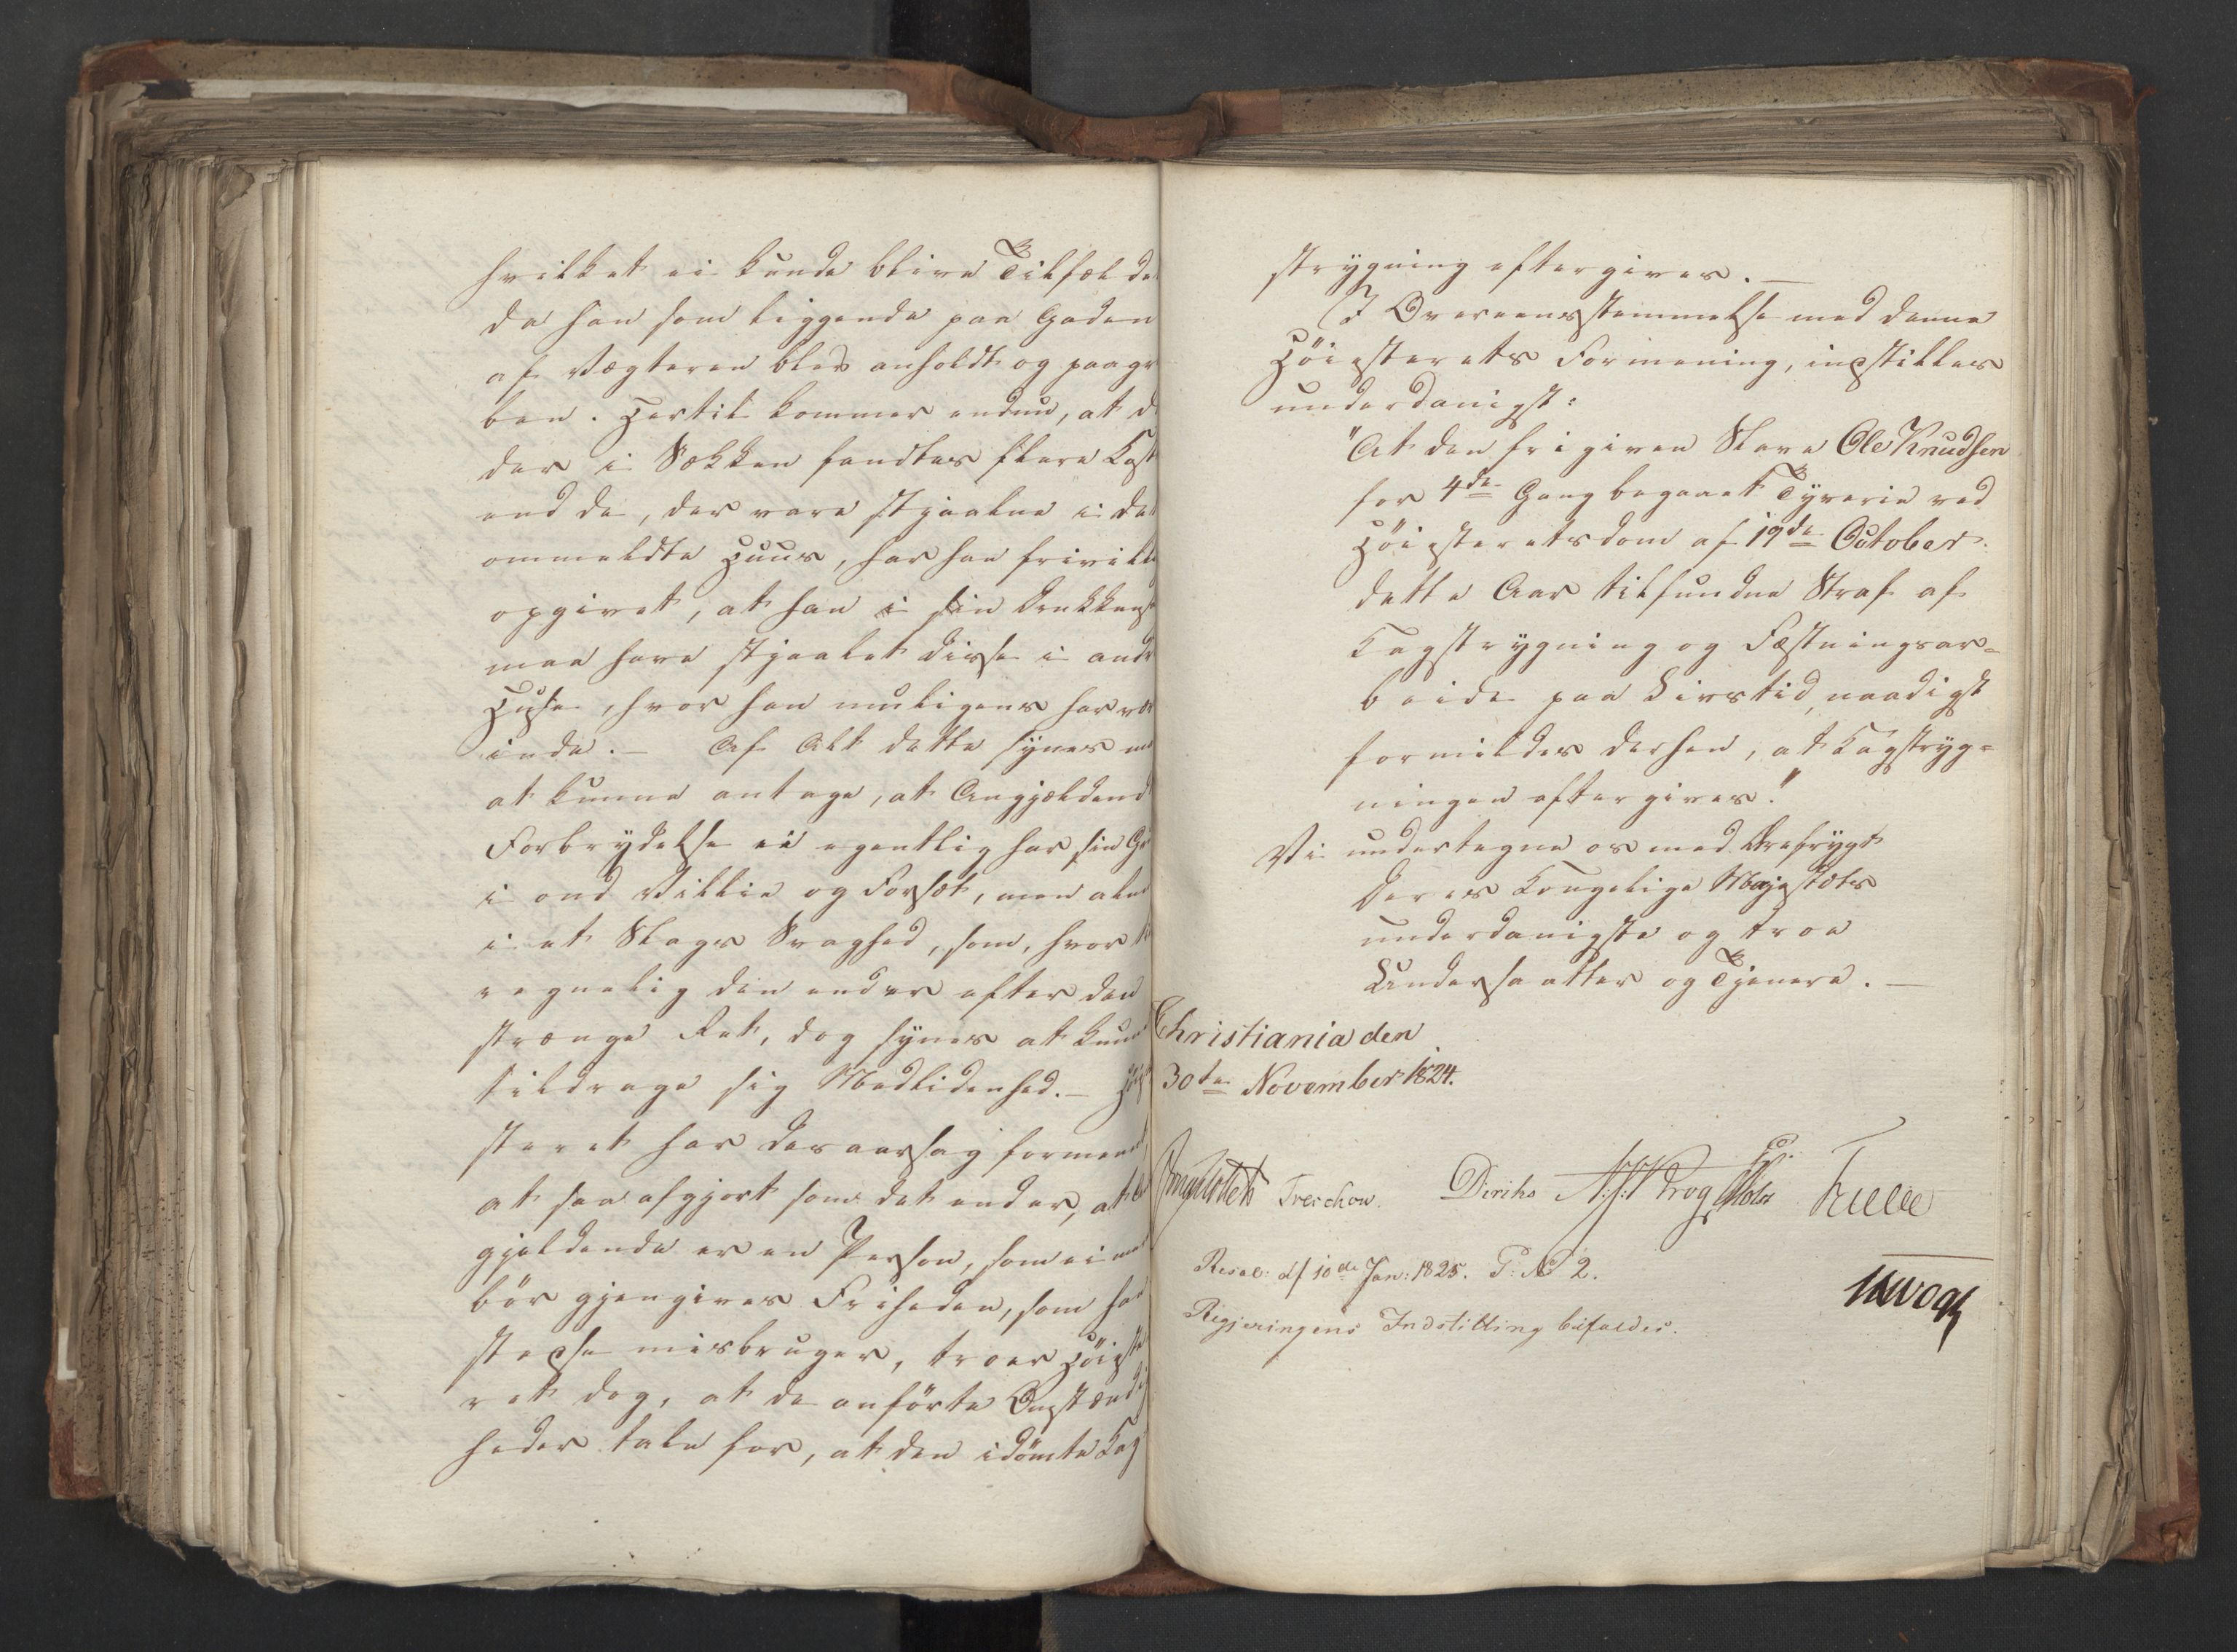 hvilket ei kunde blive Tilfældet
da han som liggende paa Gaden
af Vægteren blev anholdt og paagre
ben. Hertil kommer endnu, at d
der i Sækken fandtes flere Kost
end de, der vare stjaalne i det
ommeldte Huus, har han frivill
opgivet, at han i sin Drukkensk
maa have stjaalet disse i andr
Huse, hvor han muligens har vær
inde. — Af Alt dette synes m
at kunne antage, at Angjældend
Forbrydelse ei egentlig har sin Gr
i ond Villie og Forsæt, men alen
i et Slags Svaghed, som, hvor til
regnelig den end er efter den
strænge Ret, dog synes at kunn
tildrage sig Medlidenhed. — Høie
steret har desaarsag formeent
at saa afgjort som det end er, at
gjeldende er en Person, som ei meer
bør gjengives Friheden, som han
stedse misbruger, troer Høieste
ret dog, at de anførte Omstændig
heder tale for, at den idømte Kag
strygning eftergives. —
I Overeensstemmelse med denne
Høiesterets Formening, indstilles
underdanigst:
"At den frigiven Slave Ole Knudsen
for 4de Gang begaaet Tyverie ved
Høiesteretsdom af 19de October
dette Aar tilfundne Straf af
Kagstrygning og Fæstningsar-
beide paa Livstid, naadigst
formildes derhen, at Kagstryg-
ningen eftergives."
Vi undertegne os med Ærefrygt
Deres Kongelige Majestæts
underdanigste og troe
Undersaatter og Tjenere. —
Christiania den
30te November 1824.
Treschow. Diriks Krog Holst
Resol: df 10de Jan: 1825. P: No 2.
Regjeringens Indstilling bifaldes.